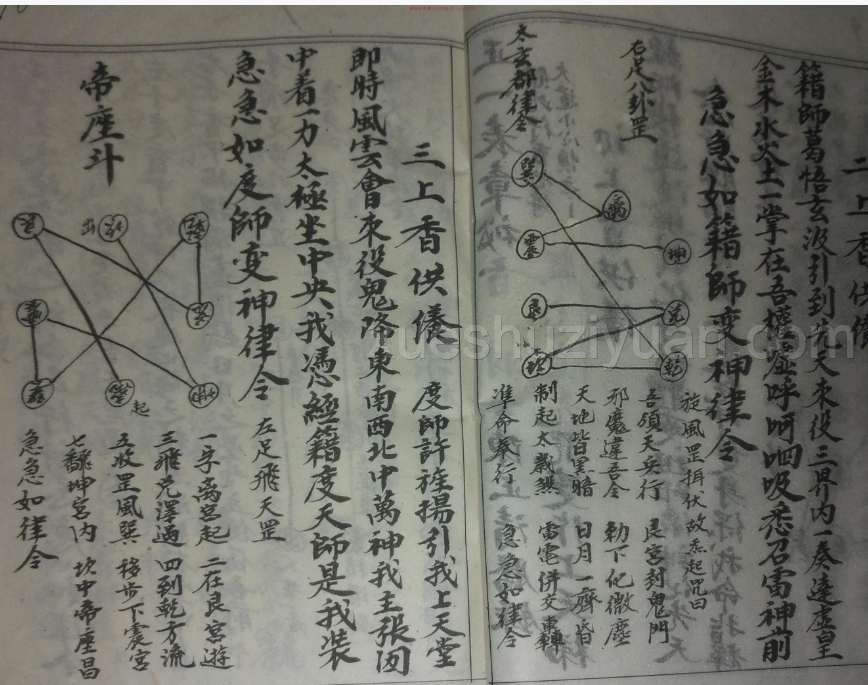 二上香供儀
籍師葛悟玄汲引到先天來役三界內一奏達虛皇
金木水火土一掌在吾權噓呼呵呬吸悉召雷神前
急急如籍師变神律令
右足八卦罡
巽 離
震 坤
艮 兌
坎 乾
旋風罡捐伏故炁起咒曰
吾領天兵行 艮宮封鬼門
邪魔違吾令 勅下化微塵
天地皆黑暗 日月一齊昏
制起太歲煞 雷電併交轟
準命奉行 急急如律令
太玄都律令
三上香供儀 度師許旌揚引我上天堂
即時風雲會來役鬼降東南西北中萬神我主張閃
中着一力太極坐中央我憑經籍度天師是我裝
急急如度師变神律令
左足飛天罡
帝座斗
出
起
一孛离宮起 二在艮宮遊
三飛兌澤過 四到乾方流
五收罡風巽 移步下震宮
七翻坤宮內 坎中帝座昌
急急如律令
xueshuziyuan.com